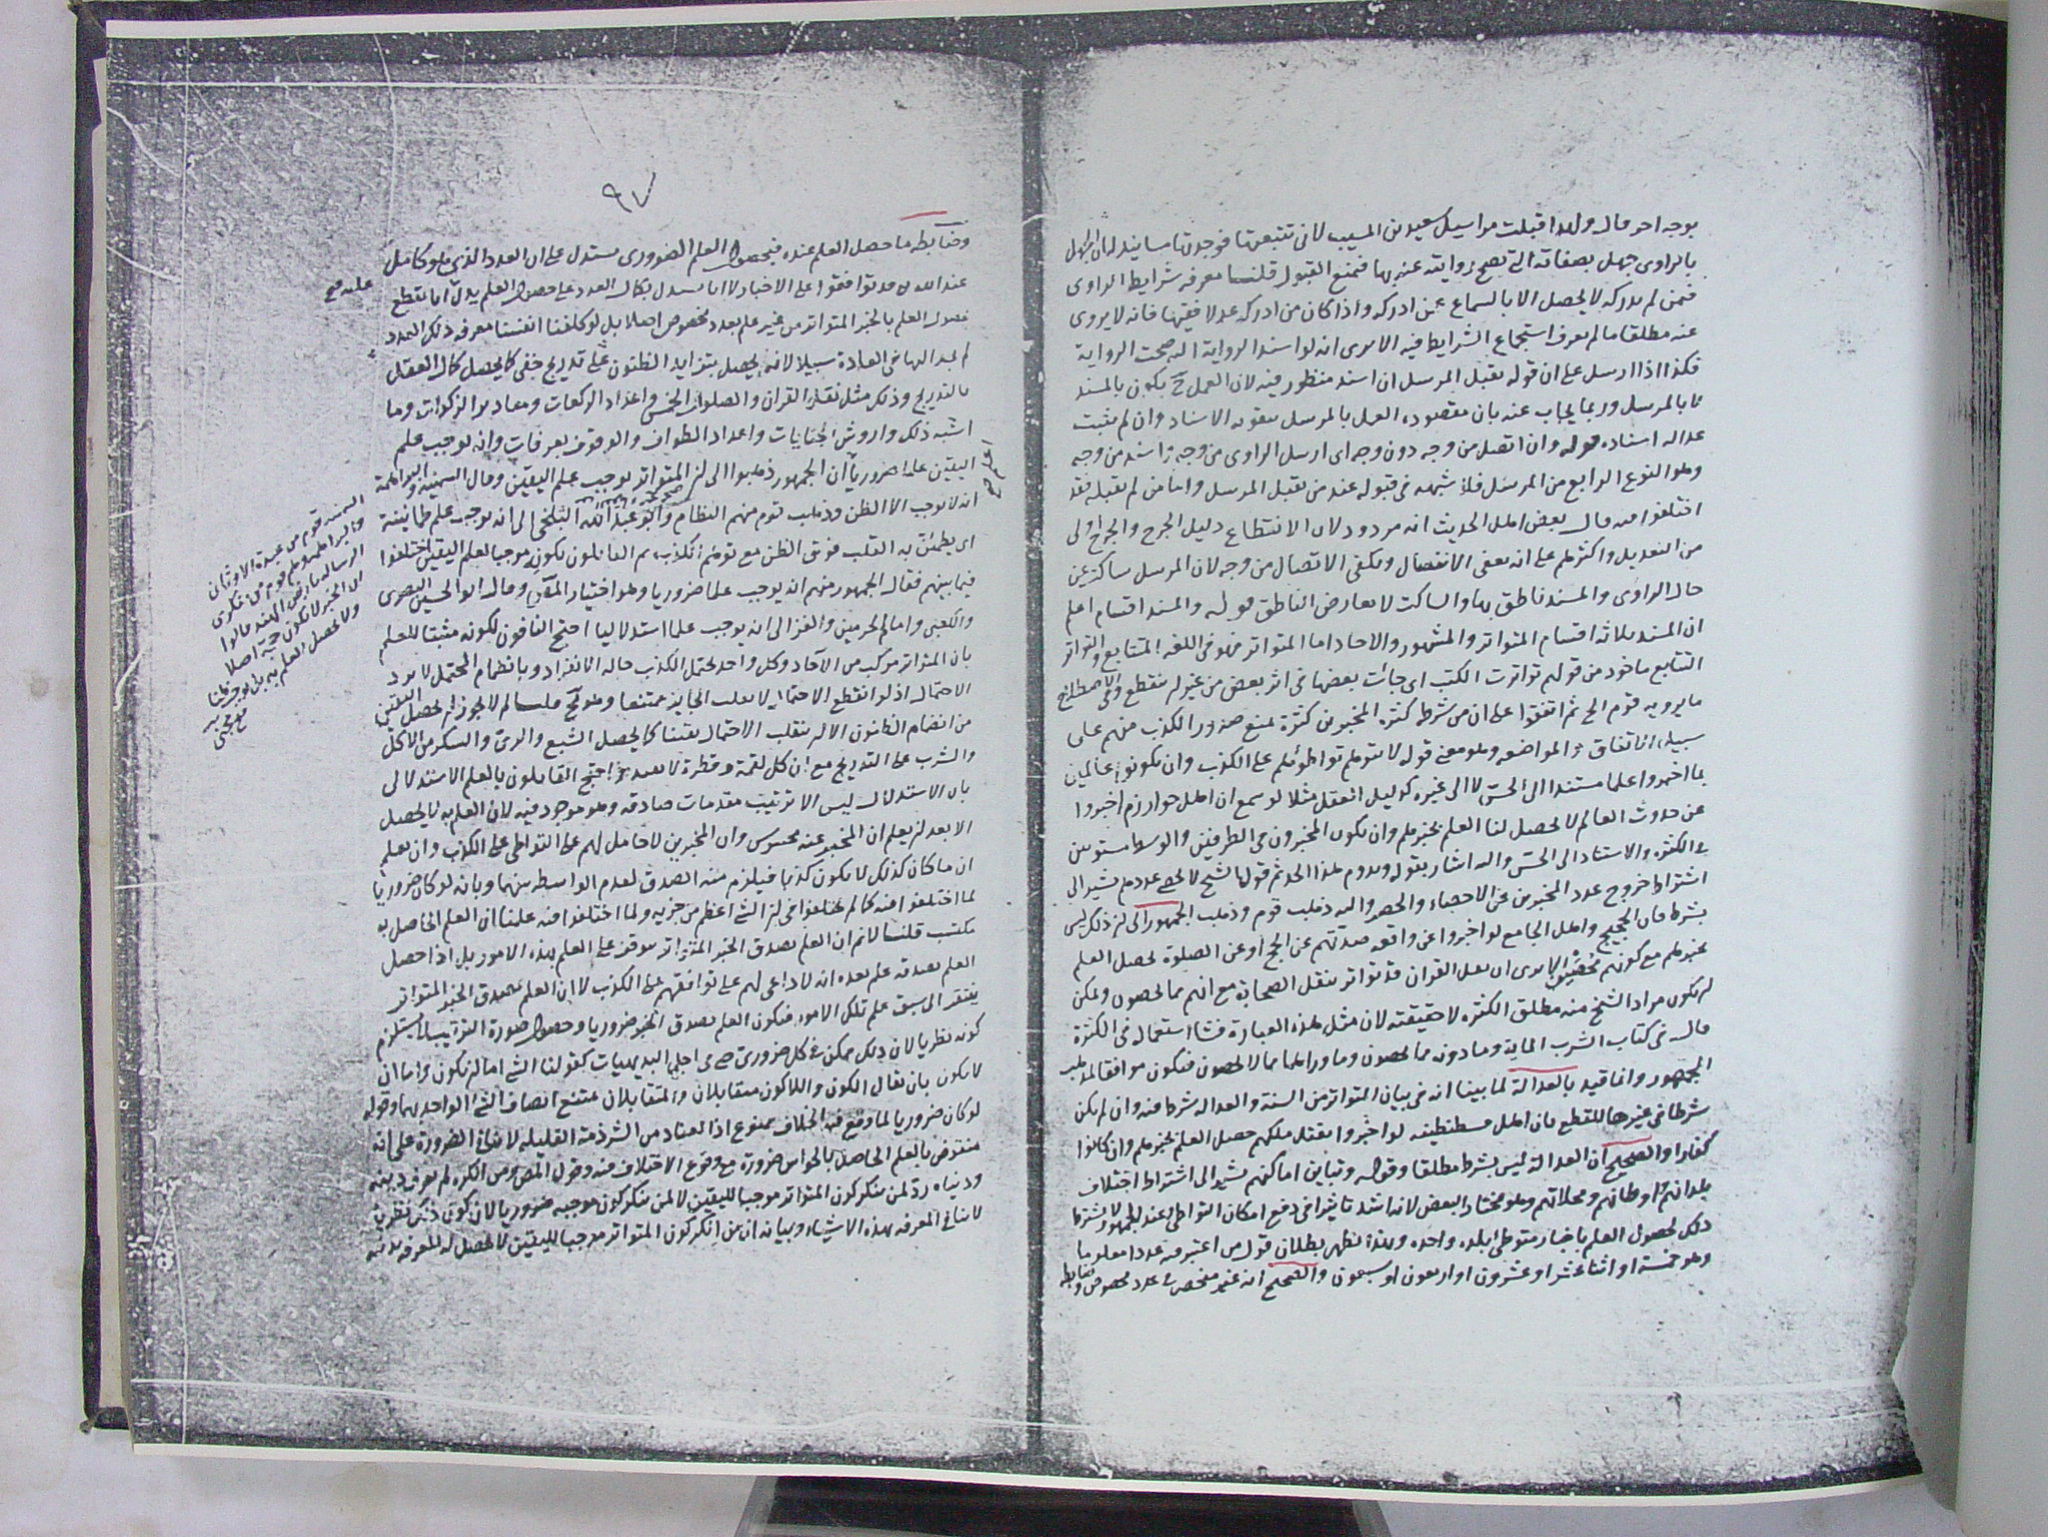 بوجه اخر قال ولهذا قبلت مراسيل سعيد بن المسيب لانى تتبعتها فوجدتها مسانيد لان الجهل
بالراوى جهل بصفاته التى تصح روايته عنه بها فمنع القبول قلنا معرفة شرايط الراوى
فمن لم يدركه لا يحصل الا بالسماع عمن ادركه واذا كان من ادركه عدلا فقيها فانه لا يروى
عنه مطلقا ما لم يعرف استجماع الشرايط فيه الا يرى انه لو اسند الرواية اليه صحت الرواية
فكذا اذا ارسل على ان قوله يقبل المرسل ان اسند منظور فيه لان العمل ح يكون بالمسند
لا بالمرسل وربما يجاب عنه بان مقصوده العمل بالمرسل بقوة الاسناد وان لم يثبت
عدالة اسناده قوله وان اتصل من وجه دون وجه اى ارسل الراوى من وجه واسند من وجه
وهو النوع الرابع من المرسل فلا شبهة فى قبوله عند من يقبل المرسل واما من لم يقبله فقد
اختلفوا فيه قال بعض اهل الحديث انه مردود لان الانقطاع دليل الجرح والجرح اولى
من التعديل واكثرهم على انه يعفى الانفصال ويكفى الاتصال من وجه لان المرسل ساكت عن
حال الراوى والمسند ناطق بها والساكت لا يعارض الناطق قوله والمسند اقسام اعلم
ان المسند ثلاثة اقسام المتواتر والمشهور والاحاد اما المتواتر فهو فى اللغة المتتابع والتواتر
التتابع ماخوذ من قولهم تواترت الكتب اى جائت بعضها فى اثر بعض من غير ان ينقطع وفى الاصطلاح
ما يرويه قوم الخ ثم اتفقوا على ان من شرطه كثرة المخبرين كثرة تمنع صدور الكذب منهم على
سبيل الاتفاق والمواضعة وهو معنى قوله لا يتوهم تواطؤهم على الكذب وان يكونوا عالمين
بما اخبروا علما مستندا الى الحس لا الى غيره كدليل العقل مثلا لو سمع ان اهل خوارزم اخبروا
عن حدوث العالم لا يحصل لنا العلم بخبرهم وان يكون المخبرون فى الطرفين والوسط مستويين
فى الكثرة والاستناد الى الحس واليه اشار بقوله ويدوم هذا الحد ثم قول الشيخ لا يحصى عددهم يشير الى
اشتراط خروج عدد المخبرين عن الاحصاء والحصر واليه ذهب قوم وذهب الجمهور الى ان ذلك ليس
بشرط فان الحجيج واهل الجامع لو اخبروا عن واقعة صدتهم عن الحج او عن الصلوة يحصل العلم
بخبرهم مع كونهم محصين الا يرى ان نقل القران قد تواتر بنقل الصحابة مع انهم مما يحصون ويمكن
ان يكون مراد الشيخ منه مطلق الكثرة لا حقيقته لان مثل هذه العبارة فشا استعماله فى الكثرة
قال فى كتاب الشرب الماية وما دونه مما يحصون وما وراءها مما لا يحصون فيكون موافقا لمذهب
الجمهور وانما قيد بالعدالة لما بينا انه فى بيان المتواتر من السنة والعدالة شرط فيه وان لم يكن
شرطا فى غيرها للقطع بان اهل قسطنطينيه لو اخبروا بقتل ملكهم حصل العلم بخبرهم وان كانوا
كفارا والصحيح ان العدالة ليس بشرط مطلقا وقوله وتباين اماكنهم يشير الى اشتراط اختلاف
بلدانهم واوطانهم ومحلاتهم وهو مختار البعض لانه اشد تاثيرا فى دفع امكان التواطئ وعند الجمهور لا يشترط
ذلك لحصول العلم باخبار متوطنى بلدة واحدة وبهذا يظهر بطلان قول من اعتبر فيه عددا معلوما
وهو خمسة او اثنا عشر او عشرون او اربعون او سبعون والصحيح انه غير منحصر فى عدد مخصوص وضابطه
٩٧
وضابطه ما حصل العلم عنده فبحصول العلم الضرورى يستدل على ان العدد الذى هو كامل
عند الله قد توافقوا على الاخبار لا انا نستدل بكمال العدد على حصول العلم يدل انا نقطع
عليه صح
بحصول العلم بالخبر المتواتر من غير علم بعدد مخصوص اصلا بل لو كلفنا انفسنا معرفة ذلك العدد
لم نجد اليها فى العادة سبيلا لانه يحصل بتزايد الظنون على تدريج خفى كما يحصل كمال العقل
بالتدريج وذلك مثل نقل القران والصلوات الخمس واعداد الركعات ومقادير الزكوات وما
اشبه ذلك واروش الجنايات واعداد الطواف والوقوف بعرفات وانه يوجب علم
اليقين علما ضروريا ان الجمهور ذهبوا الى ان المتواتر يوجب علم اليقين وقال السمنية والبراهمة
اعلم صح
انه لا يوجب الا الظن وذهب قوم منهم النظام وابو عبد الله البلخى الى انه يوجب علم طمانينة
اى يطمئن به القلب فوق الظن مع توهم الكذب ثم القائلون بكونه موجبا لعلم اليقين اختلفوا
فيما بينهم فقال الجمهور منهم انه يوجب علما ضروريا وهو اختيار المص وقال ابو الحسين البصرى
والكعبى وامام الحرمين والغزالى انه يوجب علما استدلاليا احتج النافون لكونه مثبتا للعلم
بان المتواتر مركب من الآحاد وكل واحد يحتمل الكذب حالة الانفراد وبانضمام المحتمل لا يزد
الاحتمال اذ لو انقطع الاحتمال لانقلب الجايز ممتنعا وهو مح قلنا لم لا يجوز ان يحصل اليقين
من انضمام الظنون الا ان ينقلب الاحتمال يقينا كما يحصل الشبع والرى والسكر من الاكل
والشرب على التدريج مع ان كل لقمة وقطرة لا يفيده واحتج القايلون بالعلم الاستدلالى
بان الاستدلال ليس الا ترتيب مقدمات صادقه وهو موجود فيه لان العلم به لا يحصل
الا بعد ان يعلم ان المخبر عنه محسوس وان المخبرين لا حامل لهم على التواطى على الكذب وان يعلم
ان ما كان كذلك لا يكون كذبا فيلزم منه الصدق لعدم الواسطة بينهما وبانه لو كان ضروريا
لما اختلفوا فيه كما لم يختلفوا فى ان الشئ اعظم من جزيه ولما اختلفوا فيه علمنا ان العلم الحاصل به
مكتسب قلنا لانم ان العلم بصدق الخبر المتواتر موقوف على العلم بهذه الامور بل اذا حصل
العلم بصدقه علم بعده انه لا داعى لهم على توافقهم على الكذب لا ان العلم بصدق الخبر المتواتر
يفتقر الى سبق علم تلك الامور فيكون العلم بصدق الخبر ضروريا وحصول صورة الترتيب لا يستلزم
كونه نظريا لان ذلك ممكن فى كل ضرورى حتى فى اجلى البديهيات كقولنا الشئ اما ان يكون واما ان
لا يكون بان يقال الكون واللاكون متقابلان والمتقابلان يمتنع اتصاف الشئ الواحد بهما وقوله
لو كان ضروريا لما وقع فيه الخلاف ممنوع اذ العناد من الشرذمة القليلة لا ينافى الضرورة على انه
منتقض بالعلم الحاصل بالحواس ضرورة مع وقوع الاختلاف فيه وقول المص ومن انكره لم يعرف دينه
ودنياه رد لمن ينكر كون المتواتر موجبا لليقين لا لمن ينكر كون موجبه ضروريا لان كون ذلك نظريا
لا ينافى المعرفة بهذه الاشياء وبيانه ان من انكر كون المتواتر موجبا لليقين لا يحصل له المعرفة بدينه
السمنه قوم من عبدة الاوثان
والبراهمه وهم قوم من منكرى
الرسالة بارض الهند قالوا
ان الخبر لا يكون حجة اصلا
ولا يحصل العلم به بل يوجب ظنا